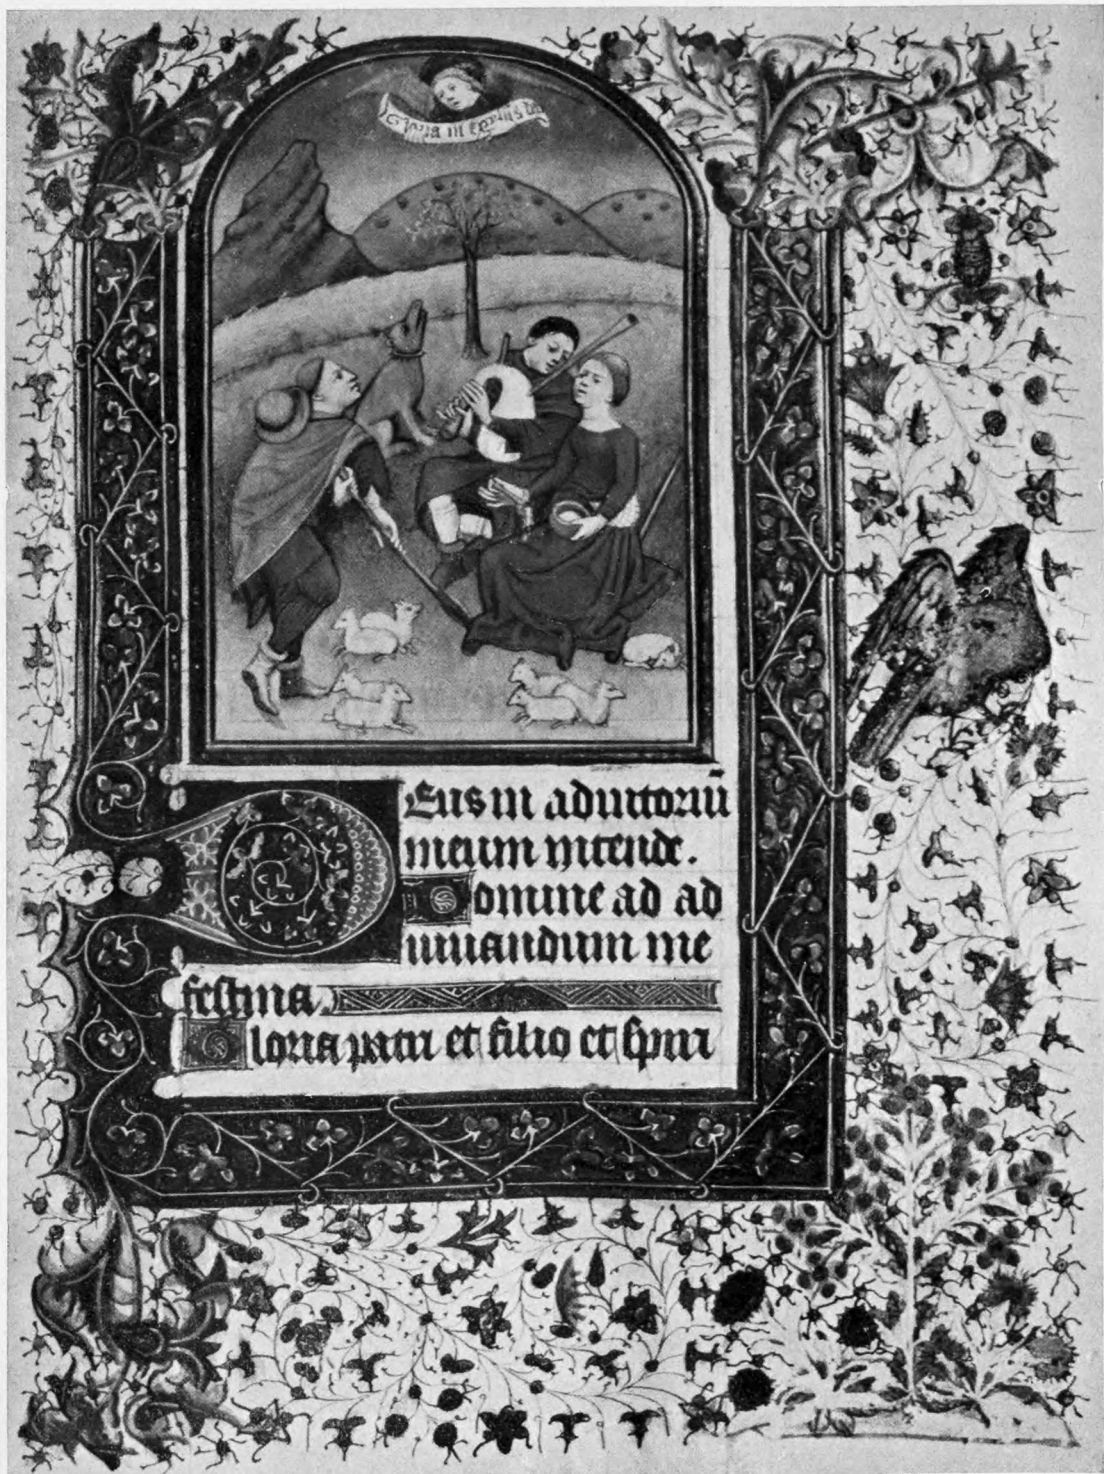 Gloria in excelsis deo
Deus in adiutoriū
meum intende.
Domine ad ad
iuuandum me
festina.
Gloria patri et filio et spiri